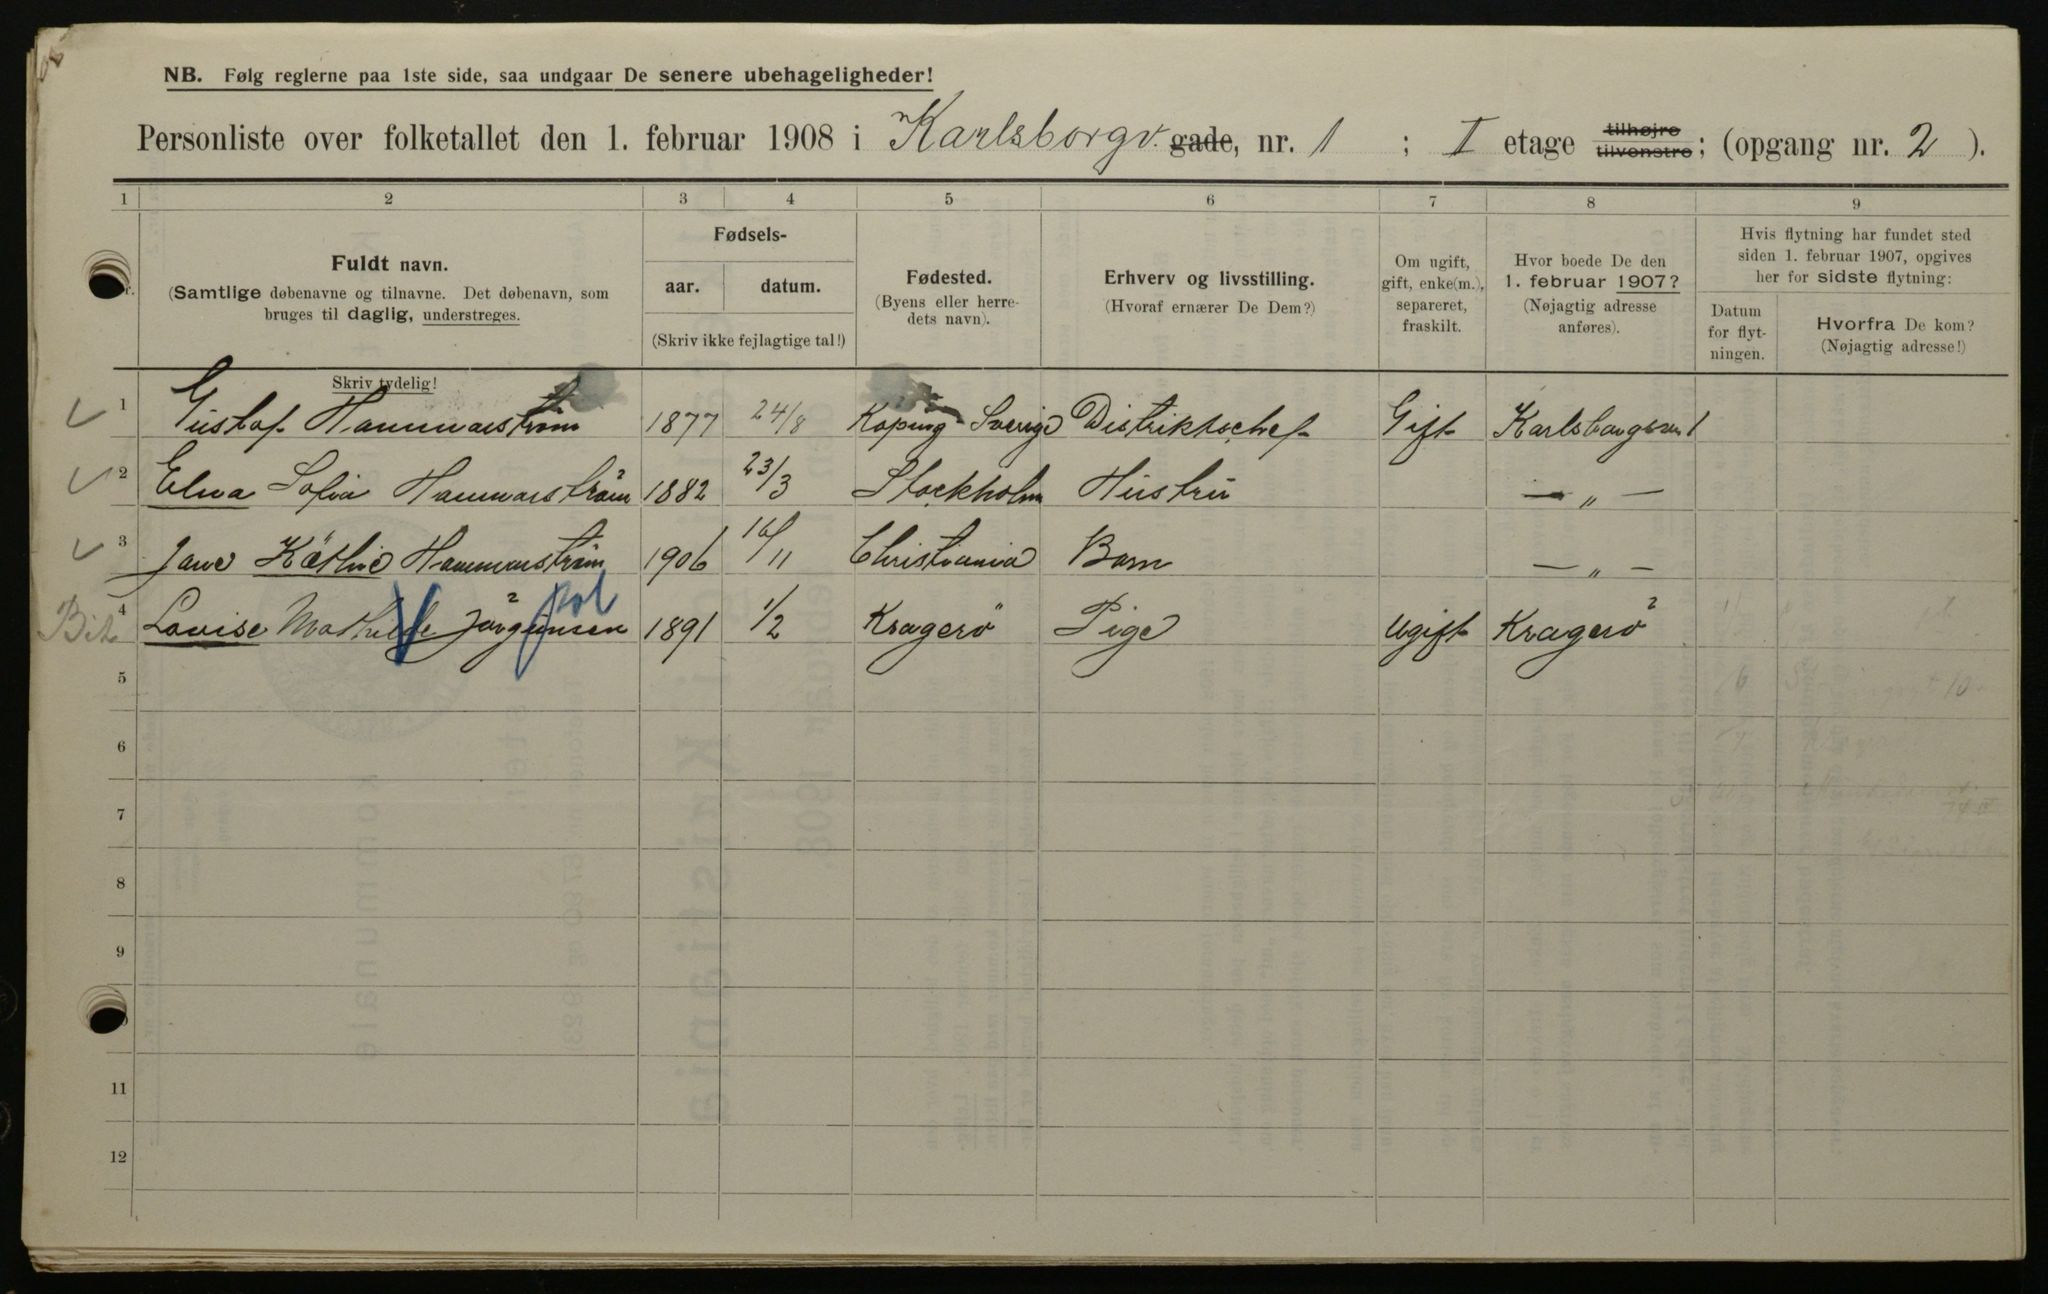 NB. Følg reglerne paa 1ste side, saa undgaar De senere ubehageligheder!
Personliste over folketallet den 1. februar 1908 i Karlsborgv. gade, nr. 1 ; I etage tilhøjre tilvenstre; (opgang nr. 2 ).
1 2 3 4 5 6 7 8 9
Fuldt navn.
(Samtlige døbenavne og tilnavne. Det døbenavn, som
bruges til daglig, understreges.
Skriv tydelig!
Fødsels-
aar. datum.
(Skriv ikke fejlagtige tal!)
Fødested.
(Byens eller herre-
dets navn).
Erhverv og livsstilling.
(Hvoraf ernærer De Dem?)
Om ugift,
gift, enke(m.),
separeret,
fraskilt.
Hvor boede De den
1. februar 1907?
(Nøjagtig adresse
anføres).
Hvis flytning har fundet sted
siden 1. februar 1907, opgives
her for sidste flytning:
Datum
for flyt-
ningen.
Hvorfra De kom?
(Nøjagtig adresse!)
1 Gustaf Hammarström 1877 24/8 Köping Sverige Distriktschef Gift Karlsborgsvn 1
2 Elna Sofia Hammarström 1882 23/3 Stockholm Hustru — „ —
3 Jane Käthie Hammarström 1906 16/11 Christiania Barn — „ —
4 Lovise Mathilde Jörgensen 1891 1/2 Kragerö Pige Ugift Kragerö
5
6
7
8
9
11
12